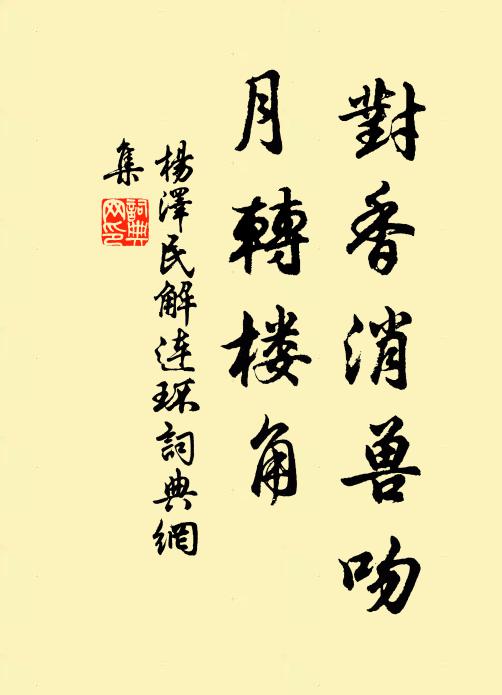 對香消兽吻
月轉楼角
楊澤民解连环詞典網
集
詞典
网印